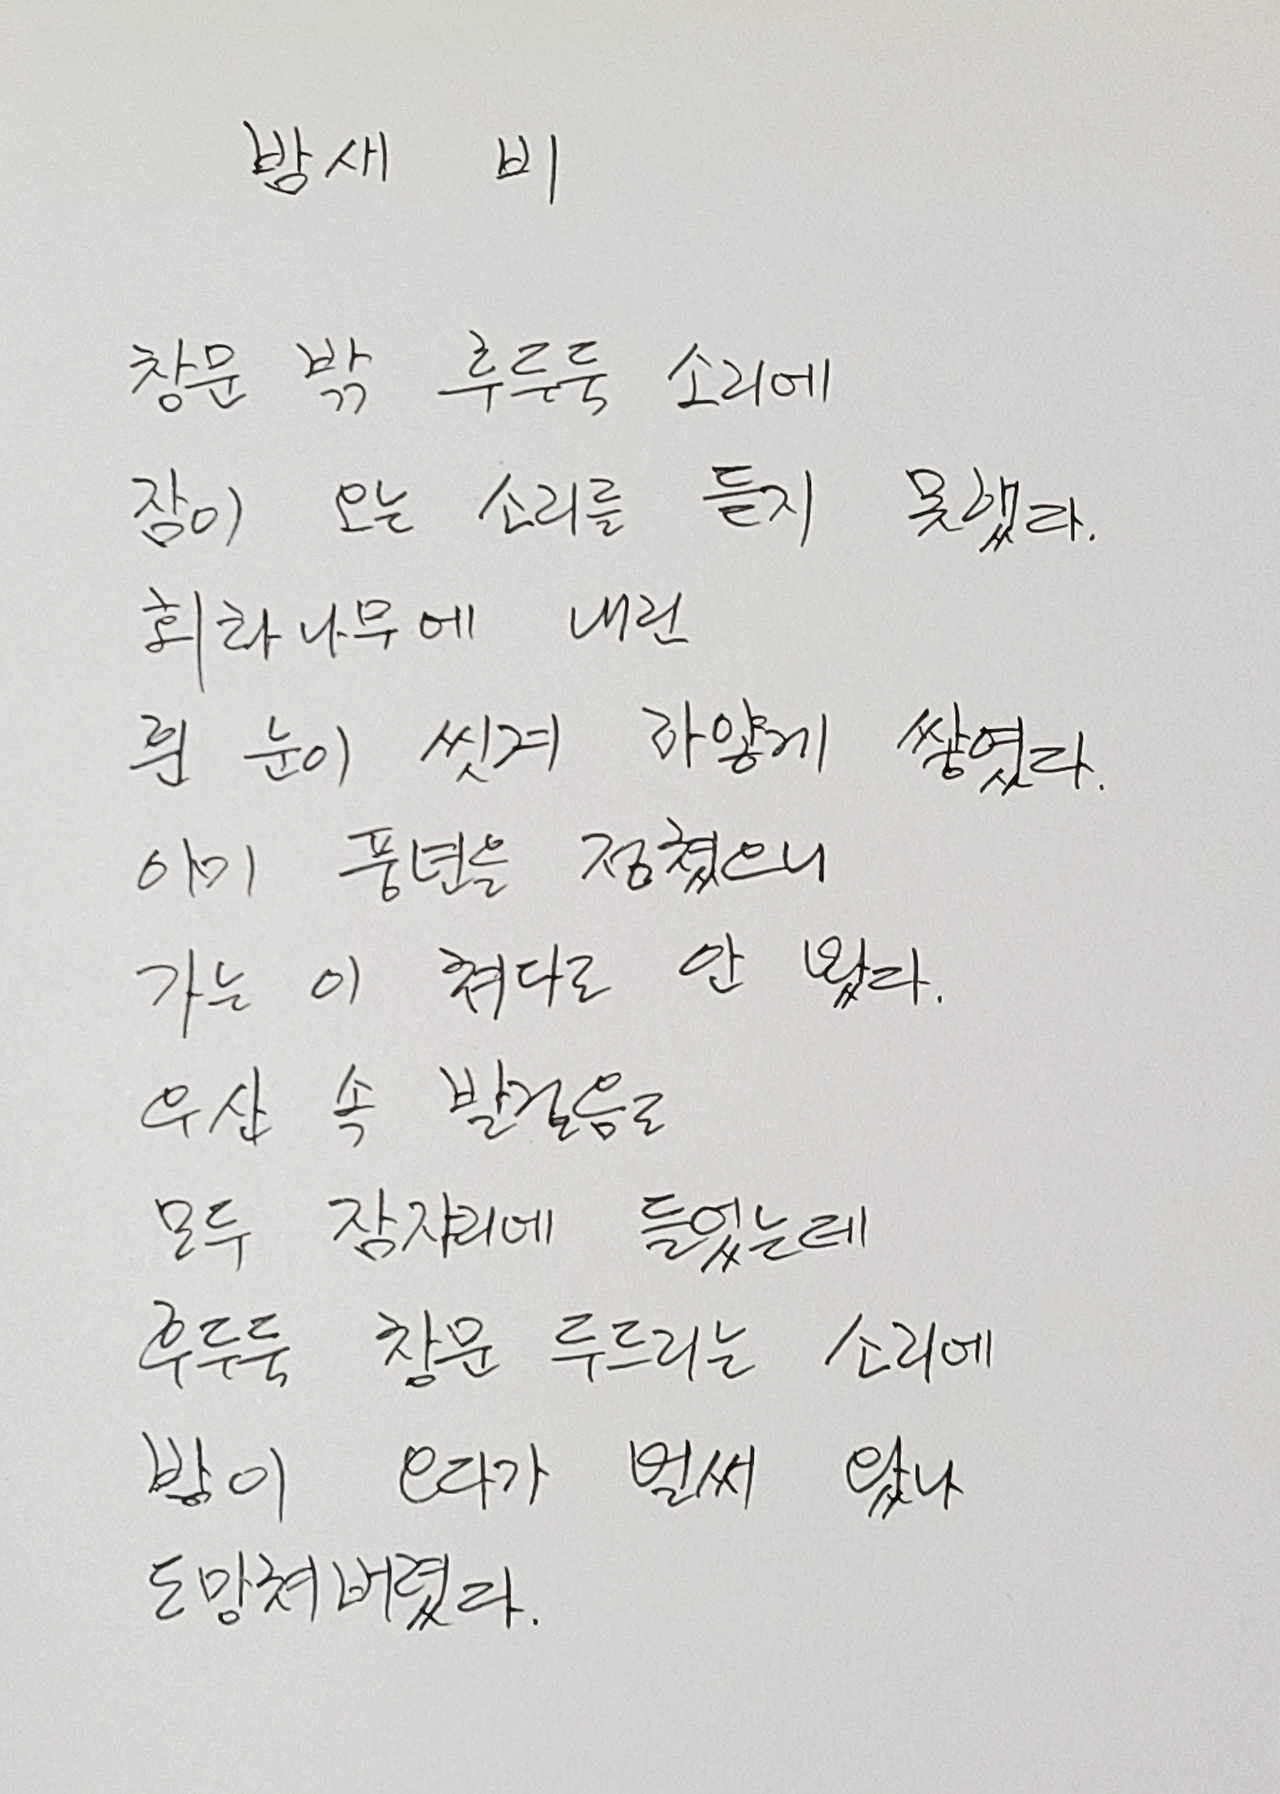 밤새 비
창문 밖 후두둑 소리에
잠이 오는 소리를 듣지 못했다.
회화나무에 내린
흰 눈이 씻겨 하얗게 쌓였다.
이미 풍년을 점쳤으니
가는 이 쳐다도 안 봤다.
우산 속 발걸음도
모두 잠자리에 들었는데
후두둑 창문 두드리는 소리에
밤이 오다가 벌써 왔나
도망쳐버렸다.